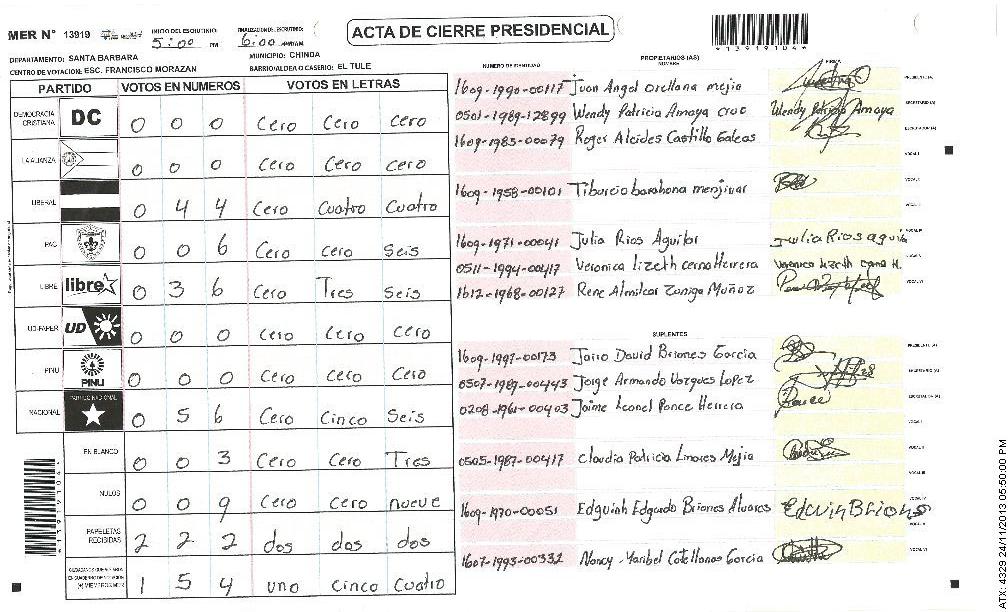 MER N° 13919
INICIO DEL ESCRUTINIO: 5:00 PM
FINALIZACION DEL ESCRUTINIO: 6:00
ACTA DE CIERRE PRESIDENCIAL
*13919104*
DEPARTAMENTO: SANTA BARBARA
MUNICIPIO: CHINDA
CENTRO DE VOTACION: ESC. FRANCISCO MORAZAN
BARRIO/ALDEA O CASERIO: EL TULE
PARTIDO VOTOS EN NUMEROS VOTOS EN LETRAS
DEMOCRACIA CRISTIANA DC 0 0 0 Cero Cero Cero
LA ALIANZA 0 0 0 Cero Cero Cero
LIBERAL 0 4 4 Cero Cuatro Cuatro
PAC 0 0 6 Cero Cero Seis
LIBRE libre 0 3 6 Cero Tres Seis
UD-FAPER UD 0 0 0 Cero Cero Cero
PINU PINU 0 0 0 Cero Cero Cero
NACIONAL PARTIDO NACIONAL 0 5 6 Cero Cinco Seis
EN BLANCO 0 0 3 Cero Cero Tres
NULOS 0 0 9 Cero Cero nueve
PAPELETAS RECIBIDAS 2 2 2 dos dos dos
1 5 4 uno Cinco Cuatro
NUMERO DE IDENTIDAD PROPIETARIOS (AS) NOMBRE FIRMA
1609-1990-00117 Juan Angel Orellana mejia PRESIDENTE (A)
0501-1989-12899 Wendy Patricia Amaya cruz Wendy Patricia Amaya SECRETARIO (A)
1609-1985-00079 Roger Alcides Castillo Galeas ESCRUTADOR (A)
VOCAL I
1609-1958-00101 Tiburcio barahona menjivar VOCAL II
VOCAL III
1609-1971-00041 Julia Rios Aguilar Julia Rios aguilar VOCAL IV
0511-1994-00417 Veronica Lizeth cerna Herrera Veronica Lizeth cerna H. VOCAL V
1612-1968-00127 Rene Almilcar Zuniga Muñoz VOCAL VI
SUPLENTES
1609-1997-00173 Jairo David Briones Garcia PRESIDENTE (A)
0507-1989-00443 Jorge Armando Vazques Lopez SECRETARIO (A)
0208-1961-00403 Jaime Leonel Ponce Herrera Ponce ESCRUTADOR (A)
VOCAL I
0505-1987-00417 Claudia Patricia Linares Mejia VOCAL II
VOCAL III
1609-1970-00051 Edguinh Edgardo Briones Alvares Edwin Briones VOCAL IV
VOCAL V
1607-1993-00332 Nancy Maribel Catellanos Garcia VOCAL VI
*13919104*
ATX: 4329 24/11/2013 05:50:00 PM